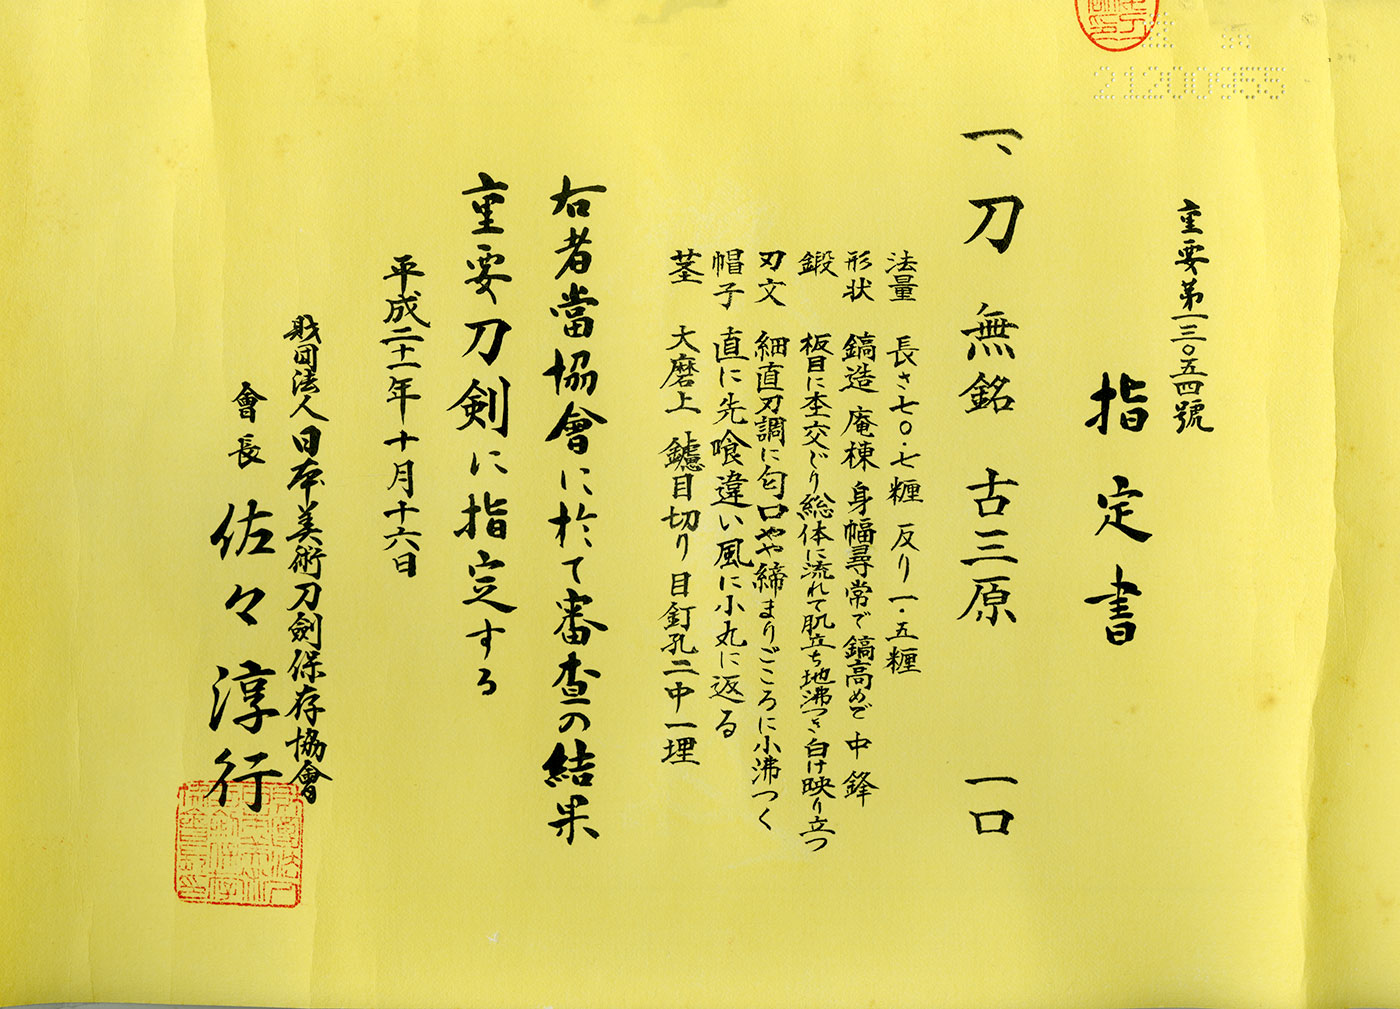 21200955
重要第一三〇五四號
指定書
一、刀 無銘 古三原 一口
法量 長さ七〇・七糎 反り一・五糎
形状 鎬造 庵棟 身幅尋常で鎬高めで 中鋒
鍛 板目に杢交じり総体に流れて肌立ち地沸つき白け映り立つ
刃文 細直刃調に匂口やや締まりごころに小沸つく
帽子 直に先喰違い風に小丸に返る
茎 大磨上 鑢目切り 目釘孔二中一埋
右者當協會に於て審査の結果
重要刀剣に指定する
平成二十一年十月十六日
財団法人日本美術刀劍保存協會
會長 佐々淳行